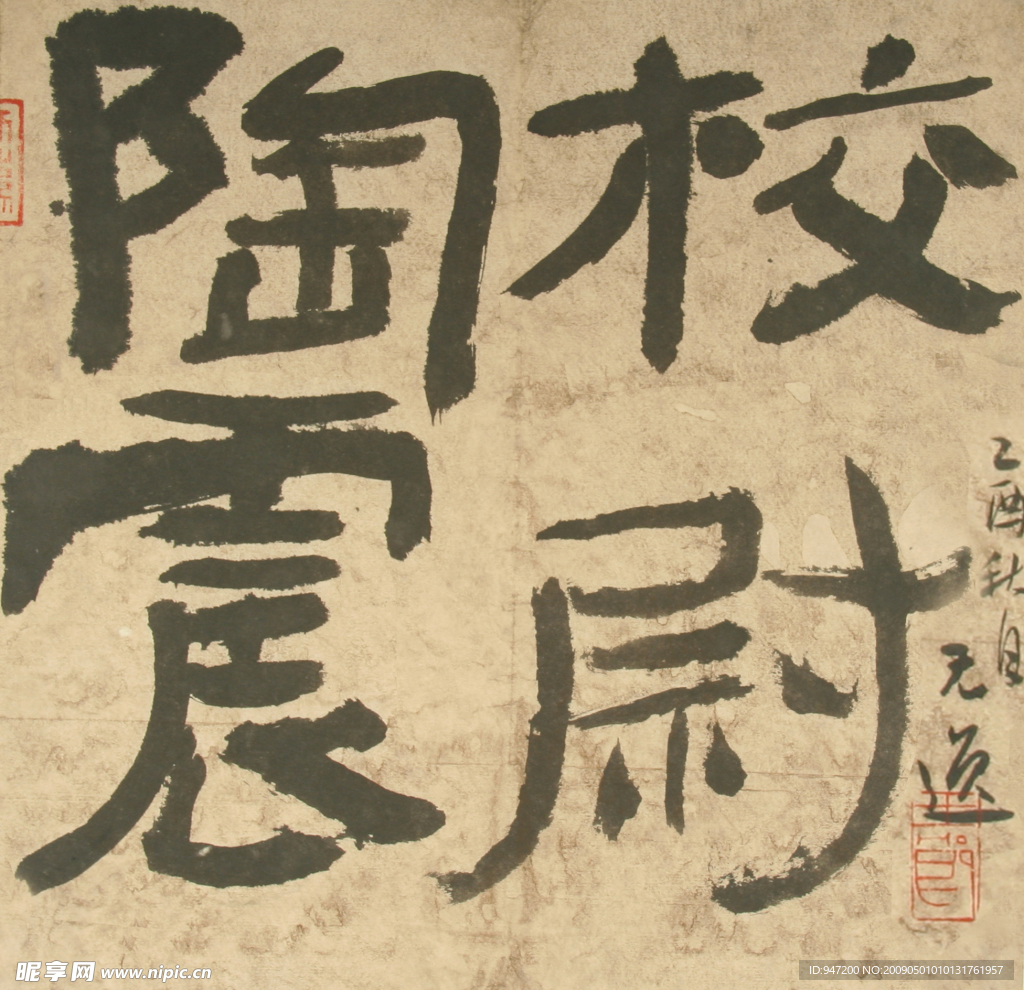 校尉
陶震
乙酉秋月
无逸
昵享网 www.nipic.cn
ID:947200 NO:20090501010131761957